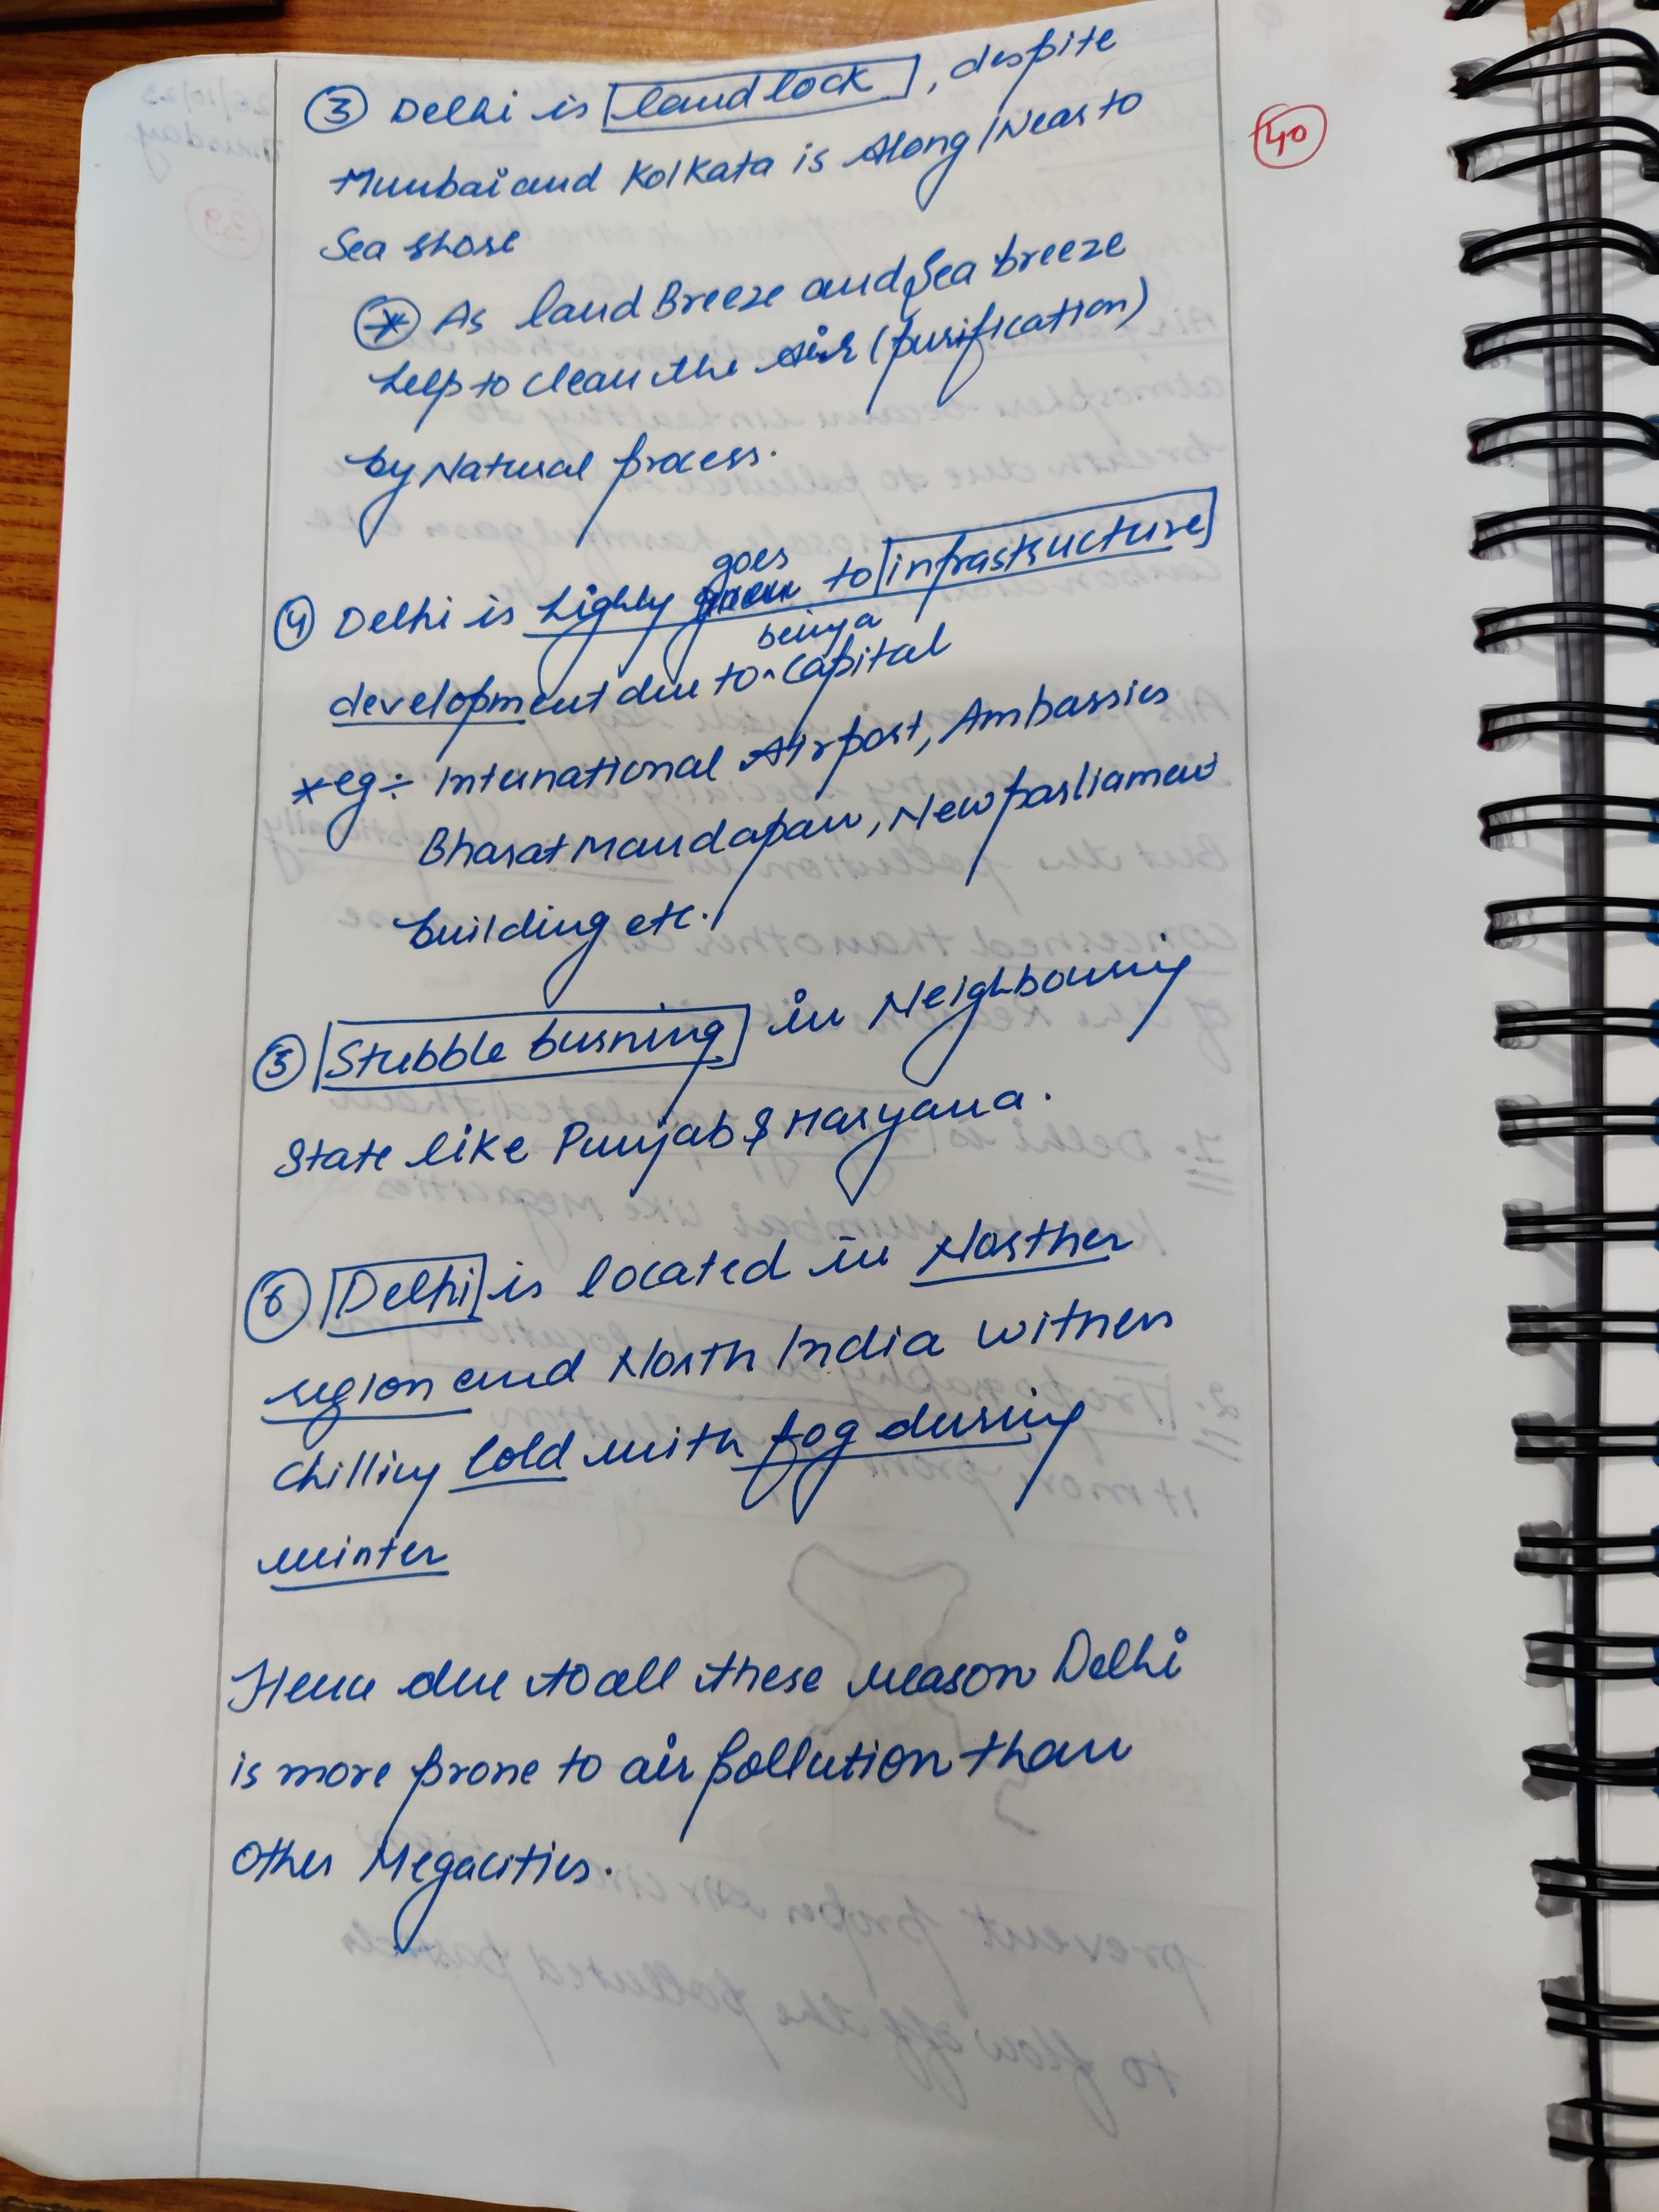 40
③ Delhi is landlock, despite
Mumbai and Kolkata is Along/Near to
Sea shore
* As land Breeze and Sea breeze
help to clean the air (purification)
by Natural process.
④ Delhi is highly goes to infrastructure
development due to being a Capital
* eg÷ International Airport, Ambassies
Bharat Mandapam, New parliament
building etc.
⑤ Stubble burning in Neighbouring
State like Punjab & Haryana.
⑥ Delhi is located in Norther
region and North India witness
chilling Cold with fog during
winter
Hence due to all these reason Delhi
is more prone to air pollution than
Other Megacities.